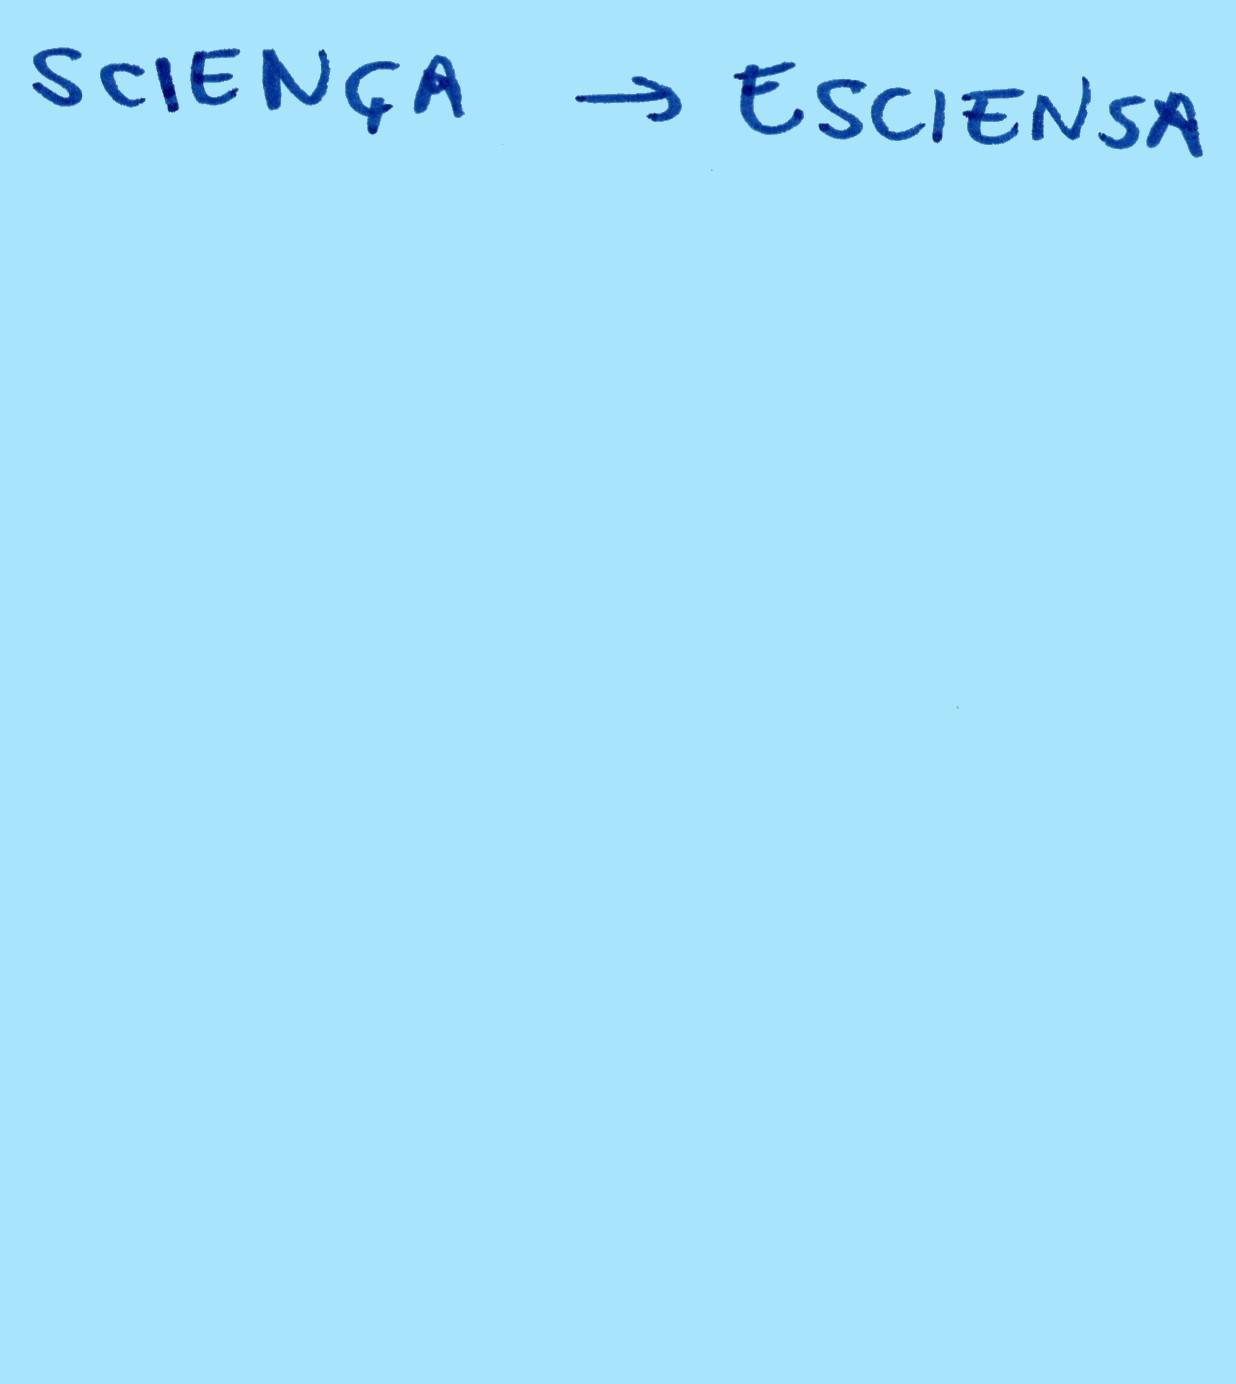 SCIENÇA → ESCIENSA